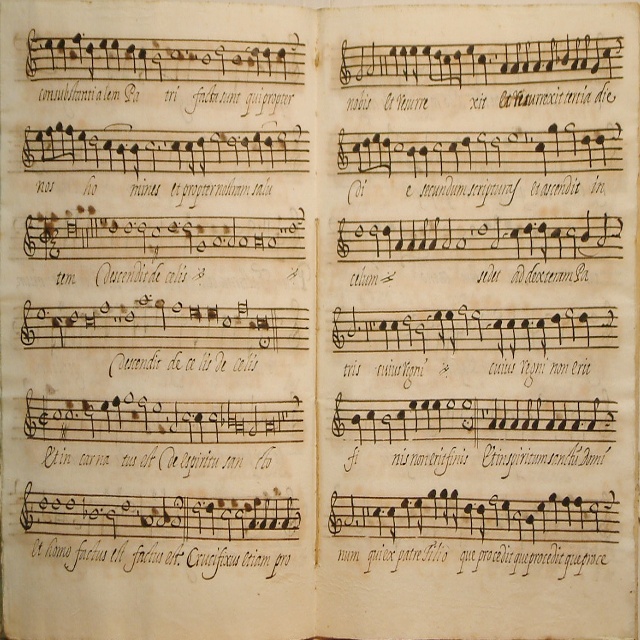 consubstantialem Pa tri facta sunt qui propter
nos ho mines et propter nostram salu
tem Descendit de celis
Descendit de ce lis de celis
Et in carna tus est De espiritu san cto
Et homo factus est factus est. Crucifixus etiam pro
nobis et resurre xit et resurrexit tertia die
Di e secundum scripturas et ascendit in
celum sedet ad dexteram Pa
tris cuius regni cuius regni non erit
fi nis non erit finis Et in spiritum sanctu Domi
num qui ex patre filio que procedit que procedit que proce